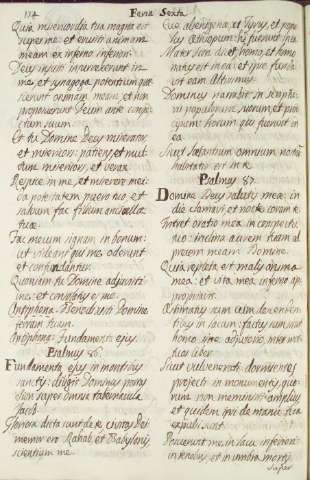 174 Feria Sexta
Quia misericordia tua magna est
super me: et eruisti animam
meam ex inferno inferiori.
Deus iniqui insurrexerunt in
me, et synagoga potentium quæ
sierunt animam meam: et non
proposuerunt te in conspe
ctu suo.
Et tu Domine Deus miserator
et misericors: patiens, et mul
tæ misericordiæ, et verax.
Respice in me, et miserere mei:
da potestatem puero tuo, et
salvum fac filium ancillæ
tuæ.
Fac mecum signum in bonum:
ut videant qui me oderunt
et confundantur:
Quoniam tu Domine adjuvisti
me, et consolatus es me.
Antiphona. Benedixisti Domine
terram tuam.
Antiphona. Fundamenta ejus.
Psalmus 86.
Fundamenta ejus in montibus
sanctis: diligit Dominus portas
Sion super omnia tabernacula
Jacob.
Gloriosa dicta sunt de te, civitas Dei
memor ero Rahab, et Babylonis
scientium me.
Ecce alienigenæ, et Tyrus, et popu
lus Æthiopum: hi fuerunt illic
Mater Sion dicet, homo, et homo
natus est in ea: et ipse funda
vit eam Altissimus.
Dominus narrabit in scriptu
ris populorum, et prin
cipum: horum qui fuerunt in
ea.
Sicut lætantium omnium nostrum
habitatio est in te.
Psalmus 87.
Domine Deus salutis meæ: in
die clamavi, et nocte coram te.
Intret oratio mea in conspectu
tuo: inclina aurem tuam ad
precem meam: Domine.
Quia repleta est malis anima
mea: et vita mea inferno ap
propinquavit.
Æstimatus sum cum descenden
tibus in lacum: factus sum sicut
homo sine adjutorio, inter mor
tuos liber.
Sicut vulnerati dormientes
projecti in monumentis, quo
rum non meministi amplius
et quidem ipsi de manu tua
expulsi sunt.
Posuerunt me in lacu inferiori
in tenebris, et in umbra mortis
Super